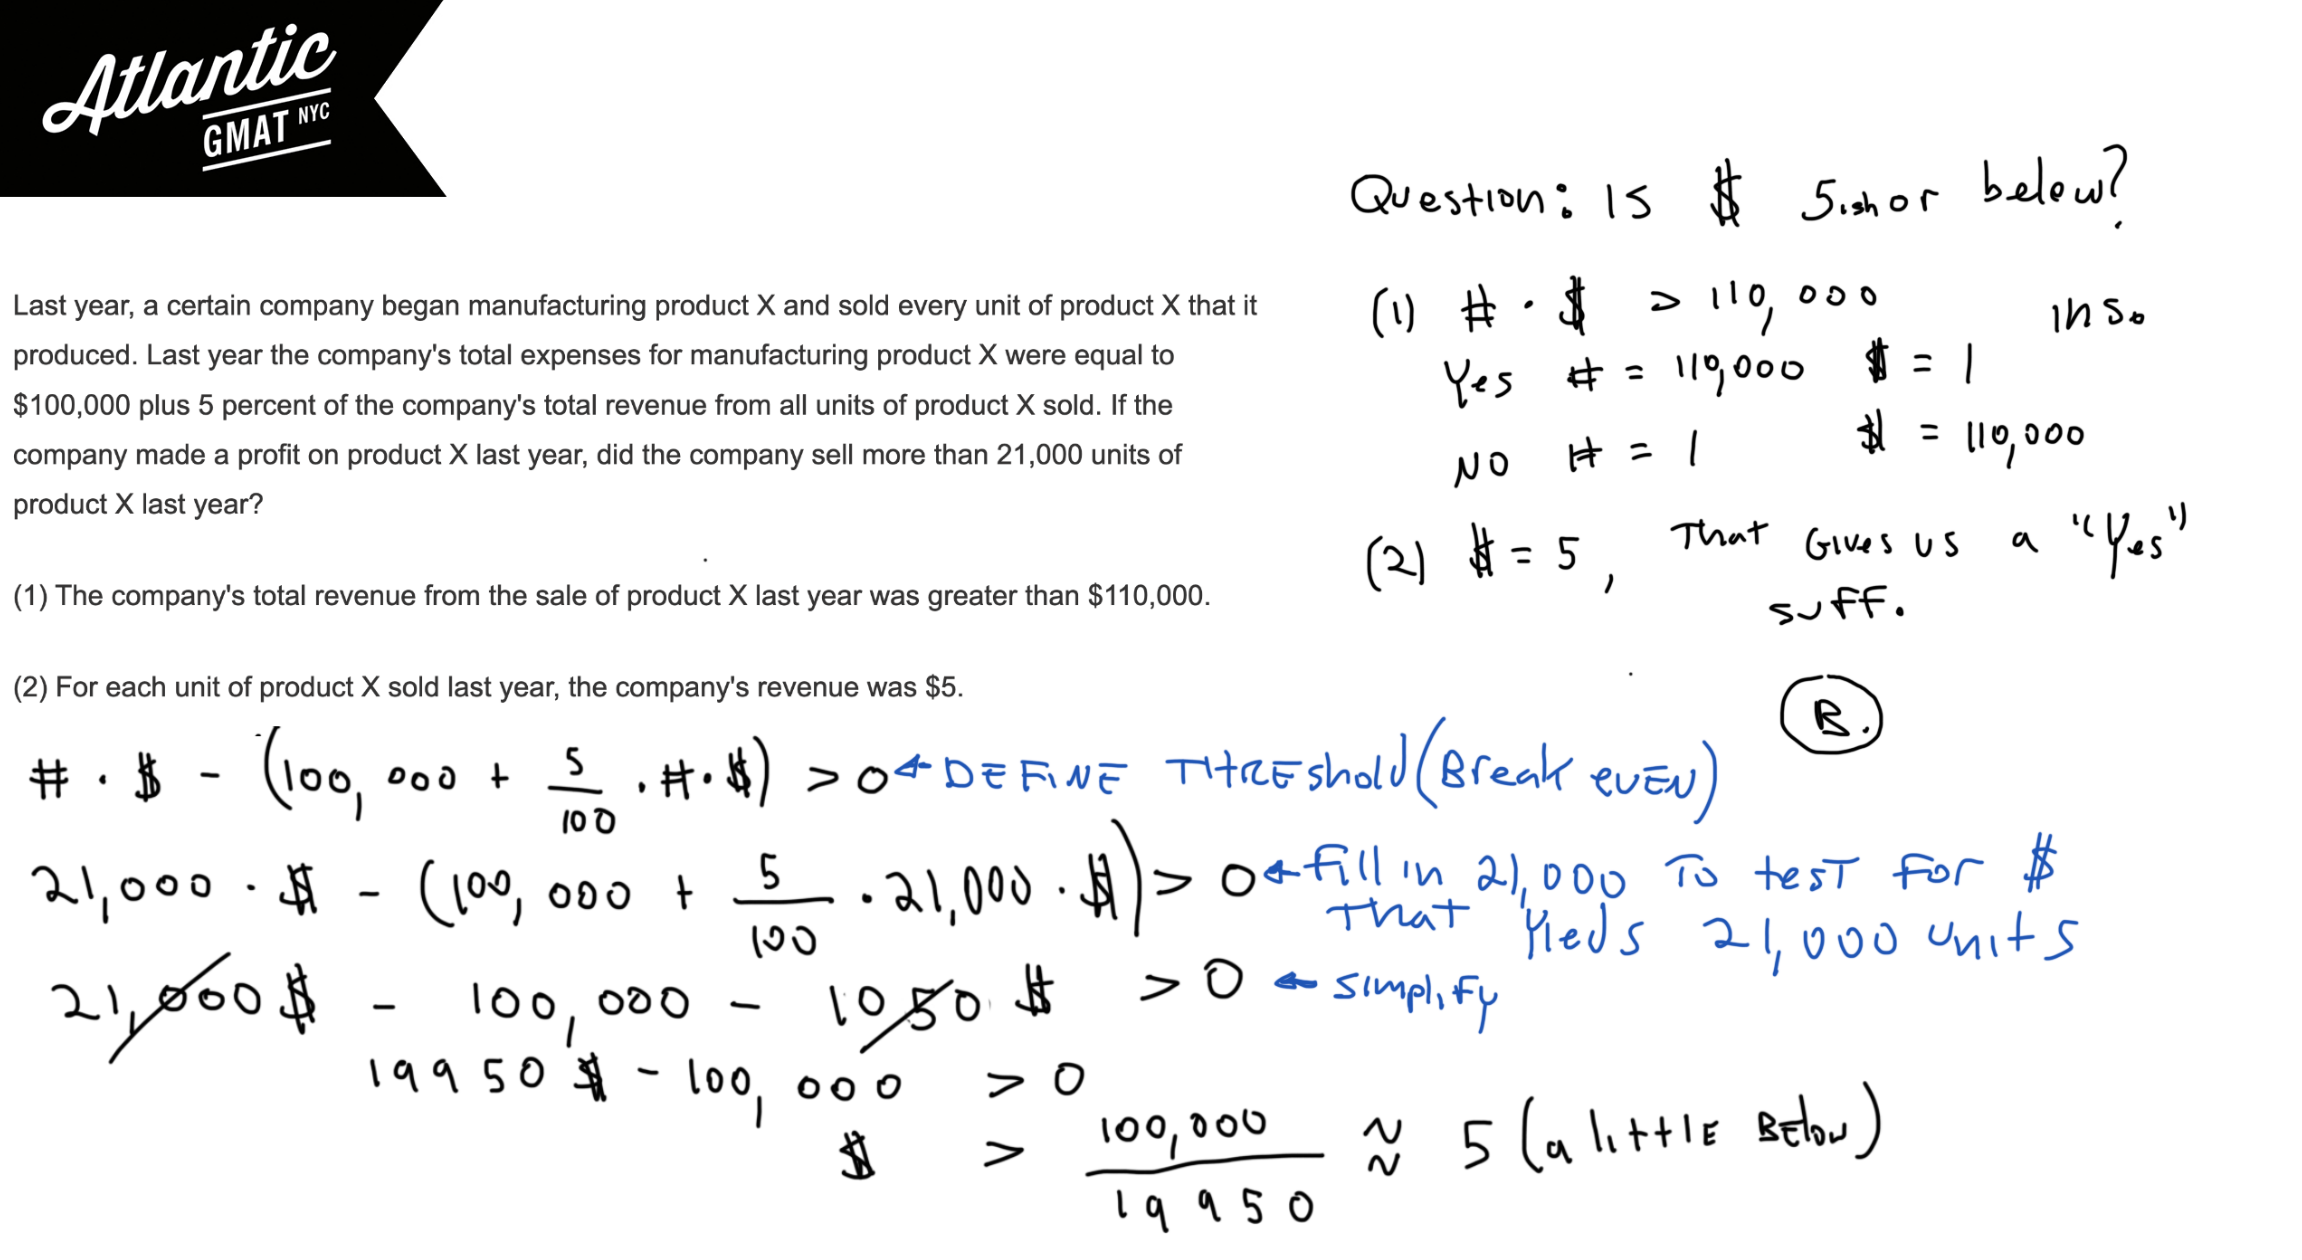 Atlantic
GMAT NYC
Last year, a certain company began manufacturing product X and sold every unit of product X that it
produced. Last year the company's total expenses for manufacturing product X were equal to
$100,000 plus 5 percent of the company's total revenue from all units of product X sold. If the
company made a profit on product X last year, did the company sell more than 21,000 units of
product X last year?
(1) The company's total revenue from the sale of product X last year was greater than $110,000.
(2) For each unit of product X sold last year, the company's revenue was $5.
Question: IS $ 5ish or below?
(1) # · $ > 110,000 ins.
Yes # = 110,000 $ = 1
NO # = 1 $ = 110,000
(2) $ = 5, That Gives us a "Yes"
suff.
B.
# · $ - (100,000 + 5/100 · # · $) > 0 ← DEFINE THREshold (Break EVEN)
21,000 · $ - (100,000 + 5/100 · 21,000 · $) > 0 ← fill in 21,000 To test For $
that Yieds 21,000 units
21,000 $ - 100,000 - 1050 $ > 0 ← simplify
19950 $ - 100,000 > 0
$ > 100,000/19950 ≈ 5 (a little Below)